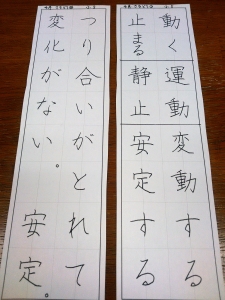 動く運動変動する
止まる静止安定する
つり合いがとれて
変化がない。安定。